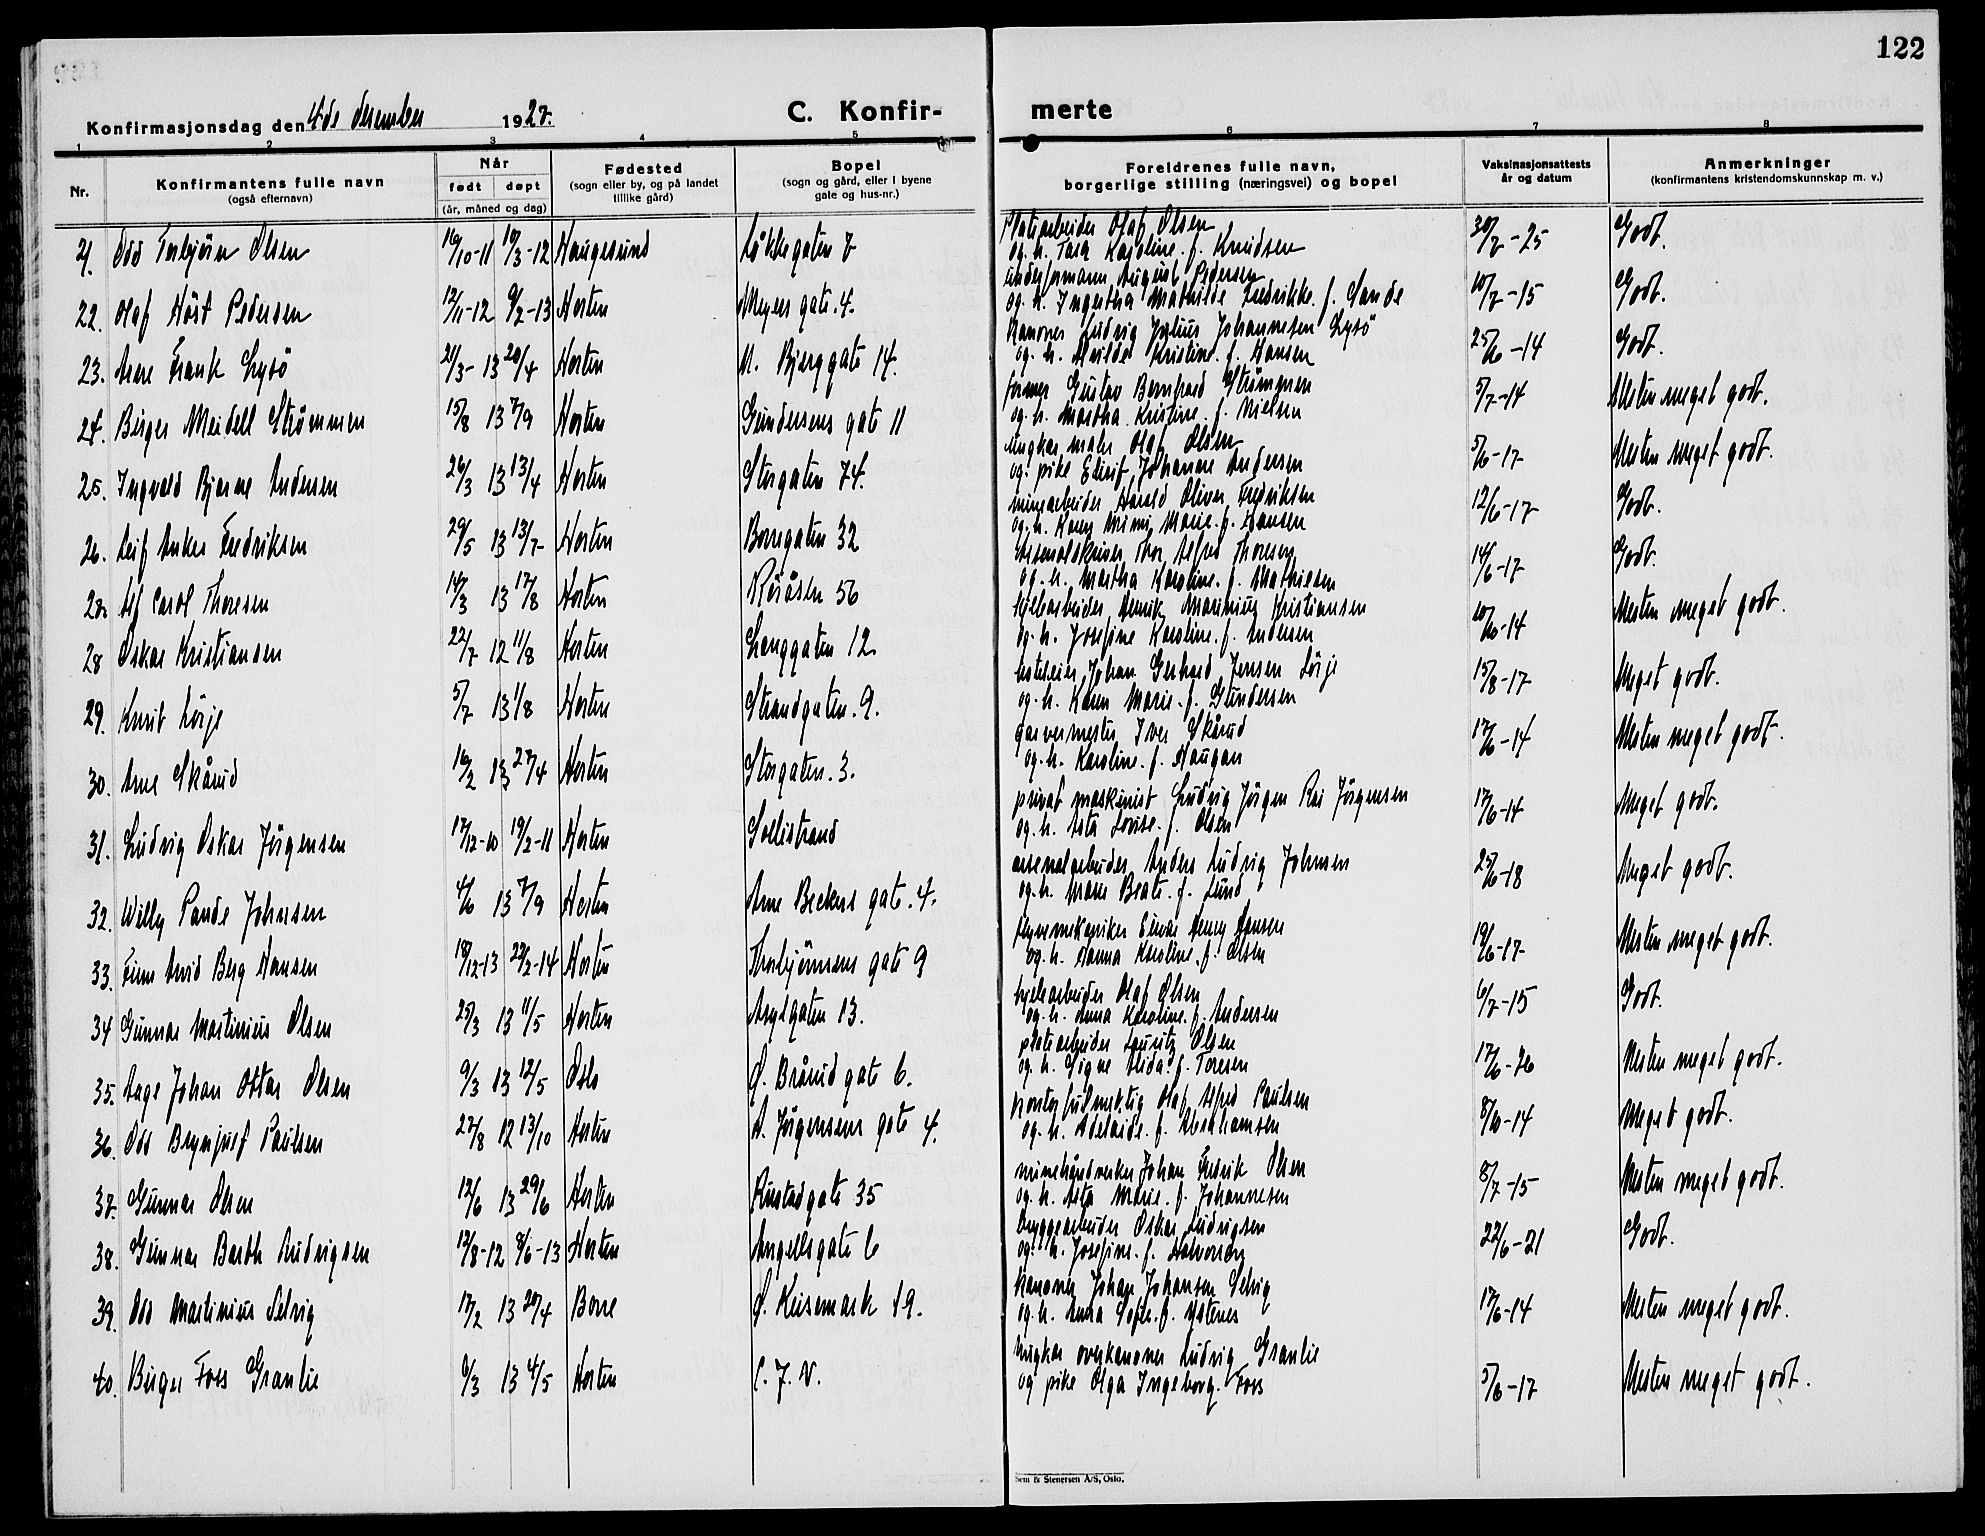 122
Konfirmasjonsdag den 4de desember 1927. C. Konfir- merte
1 2 3 4 5 6 7 8
Nr. Konfirmantens fulle navn (også efternavn) Når født døpt (år, måned og dag) Fødested (sogn eller by, og på landet tillike gård) Bopel (sogn og gård, eller i byene gate og hus-nr.) Foreldrenes fulle navn, borgerlige stilling (næringsvei) og bopel Vaksinasjonsattests år og datum Anmerkninger (konfirmantens kristendomskunnskap m. v.)
21. Odd Torbjörn Olsen 16/10-11 10/3-12 Haugesund Løkkegaten 7 Platearbeider Olaf Olsen og h. Tara Karoline f. Knudsen 30/7-25 Godt.
22. Olaf Høst Pedersen 12/11-12 9/2-13 Horten Meyers gate. 4. underformann August Pedersen og h. Ingertha Mathilde Fredrikke f. Sande 10/7-15 Godt.
23. Arne Frank Lysö 21/3-13 20/4 Horten N. Bjerggate 14. Kanoner Ludvig Julius Johannesen Lysö og h. Alvilde Kristine f. Hansen 25/6-14 Godt.
24. Birger Meidell Strömmen 15/8 13 7/9 Horten Gundersens gate 11 former Gustav Bernhard Strömmen og h. Martha Kristine f. Nielsen 5/7-14 Nesten meget godt.
25. Ingvald Bjarne Andersen 26/3 13 13/4 Horten Storgaten 74. Ungkar maler Olaf Olsen og pike Johanne Andersen 5/6-17 Nesten meget godt.
26. Leif Anker Fredriksen 29/5 13 13/7 Horten Borregaten 32 minearbeider Harald Oliver Fredriksen og h. Karen Mimi Marie f. Hansen 12/6-17 Godt.
27. Alf Carol Thoresen 14/3 13 17/8 Horten Röråsen 56 Arsenalskriver Thor Alfred Thoresen og h. Martha Karoline f. Mathiesen 14/6-17 Godt.
28 Oskar Kristiansen 22/7 12 11/8 Horten Langgaten 12. hjelpearbeider Henrik Marinius Kristiansen og h. Josefine Karoline f. Andersen 10/6-14 Nesten meget godt.
29. Knut Lörje 5/7 13 1/8 Horten Strandgaten. 9. hoteleier Johan Gerhard Jensen Lörje og h. Karen Marie f. Gundersen 15/8-17 Meget godt.
30. Arne Skårud 16/2 13 27/4 Horten Storgaten. 3. garvermester Iver Skårud og h. Karoline f. Haugan 17/6-14 Nesten meget godt.
31. Ludvig Oskar Jörgensen 17/12-10 19/2-11 Horten Sollistrand privat maskinist Ludvig Jörgen Rai Jörgensen og h. Asta Lovise f. Olsen 17/6-14 Meget godt.
32. Willy Pande Johnsen 4/6 13 7/9 Horten Arne Beckers gate. 4. arsenalarbeider Anders Ludvig Johnsen og h. Marie Beate f. Lund 25/6-18 Meget godt.
33. Finn Arvid Berg Hansen 18/12-13 22/2-14 Horten Thorbjörnsens gate 9 flyvemekaniker Einar Henry Hansen og h. Hanna Karoline f. Olsen 19/6-17 Nesten meget godt.
34 Gunnar Martinius Olsen 25/3 13 11/5 Horten Asylgaten 13. hjelpearbeider Olaf Olsen og h. Anna Karoline f. Andersen 6/7-15 Godt.
35. Aage Johan Ottar Olsen 9/3 13 12/5 Oslo O. Bråud gate 6. platearbeider Lauritz Olsen og h. Signe Alida f. Toresen 17/6-26 Nesten meget godt.
36. Odd Brynjulf Paulsen 27/8 12 13/10 Horten A. Jörgensens gate 4. kontorfullmektig Olaf Alfred Paulsen og h. Adelaide f. Abrahamsen 8/6-14 Meget godt.
37. Gunnar Olsen 12/6 13 29/6 Horten Rustadgate 35 minehåndverker Johan Fredrik Olsen og h. Asta Marie f. Johannesen 8/7-15 Nesten meget godt.
38. Gunnar Barth Ludvigsen 12/8-12 8/6-13 Horten Angellsgate 6 bryggearbeider Oskar Ludvigsen og h. Josefine f. Halvorsen 22/6-21 Godt.
39. Odd Martinius Selvig 17/2 13 20/4 Borre O. Keisemark 19. Kanoner Johan Johansen Selvig og h. Anna Sofie f. Ystenes 17/6-14 Nesten meget godt.
40. Birger Foss Granlie 6/3 13 4/5 Horten C. J. V. Ungkar overkanoner Ludvig Granlie og pike Olga Ingeborg Foss 5/6-17 Nesten meget godt.
Sem & Stenersen A/S, Oslo.